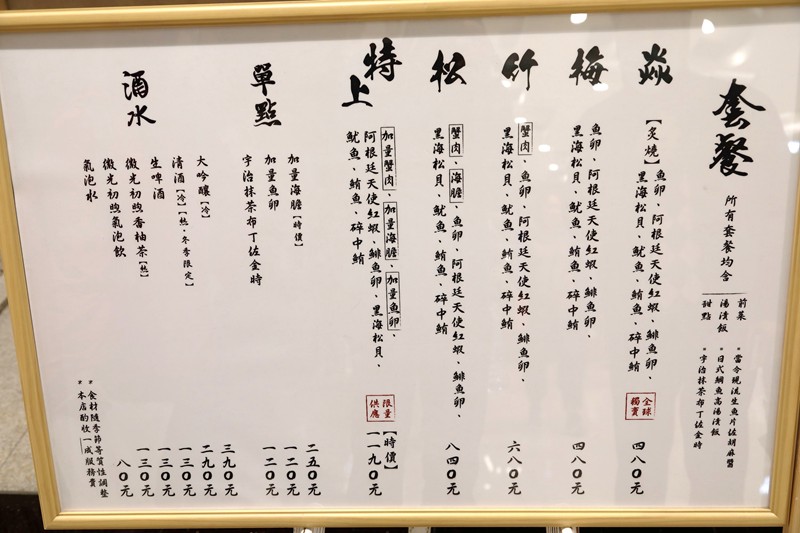 套餐
所有套餐均含
前菜•當令現流生魚片佐胡麻醬
湯漬飯•日式鯛魚高湯漬飯
甜點•宇治抹茶布丁佐金時
焱
【炙燒】魚卵、阿根廷天使紅蝦、鯡魚卵、
黑海松貝、魷魚、鮪魚、碎中鮪
全球獨賣
四八0元
梅
魚卵、阿根廷天使紅蝦、鯡魚卵、
黑海松貝、魷魚、鮪魚、碎中鮪
四八0元
竹
蟹肉、魚卵、阿根廷天使紅蝦、鯡魚卵、
黑海松貝、魷魚、鮪魚、碎中鮪
六八0元
松
蟹肉、海膽、魚卵、阿根廷天使紅蝦、鯡魚卵、
黑海松貝、魷魚、鮪魚、碎中鮪
八四0元
特上
加量蟹肉、加量海膽、加量魚卵、
阿根廷天使紅蝦、鯡魚卵、黑海松貝、
魷魚、鮪魚、碎中鮪
限量供應
【時價】
一一九0元
單點
加量海膽【時價】 二五0元
加量魚卵 一二0元
宇治抹茶布丁佐金時 一二0元
酒水
大吟釀【冷】 三九0元
清酒【冷】【熱•冬季限定】 二九0元
生啤酒 一三0元
微光初煦香柚茶【熱】 一三0元
微光初煦氣泡飲 一三0元
氣泡水 八0元
•食材隨季節等質性調整
•本店酌收一成服務費